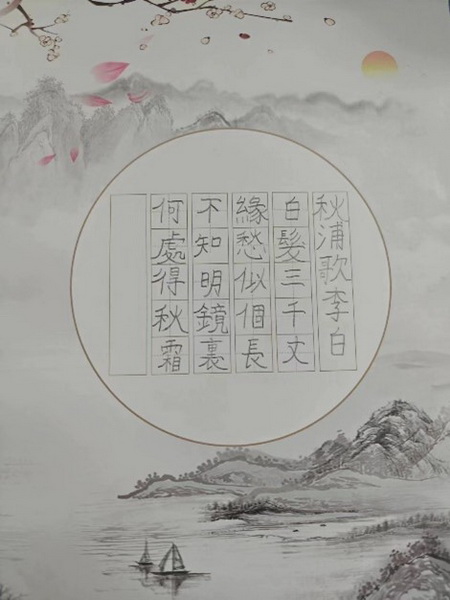 秋浦歌李白
白髮三千丈
緣愁似個長
不知明鏡裏
何處得秋霜